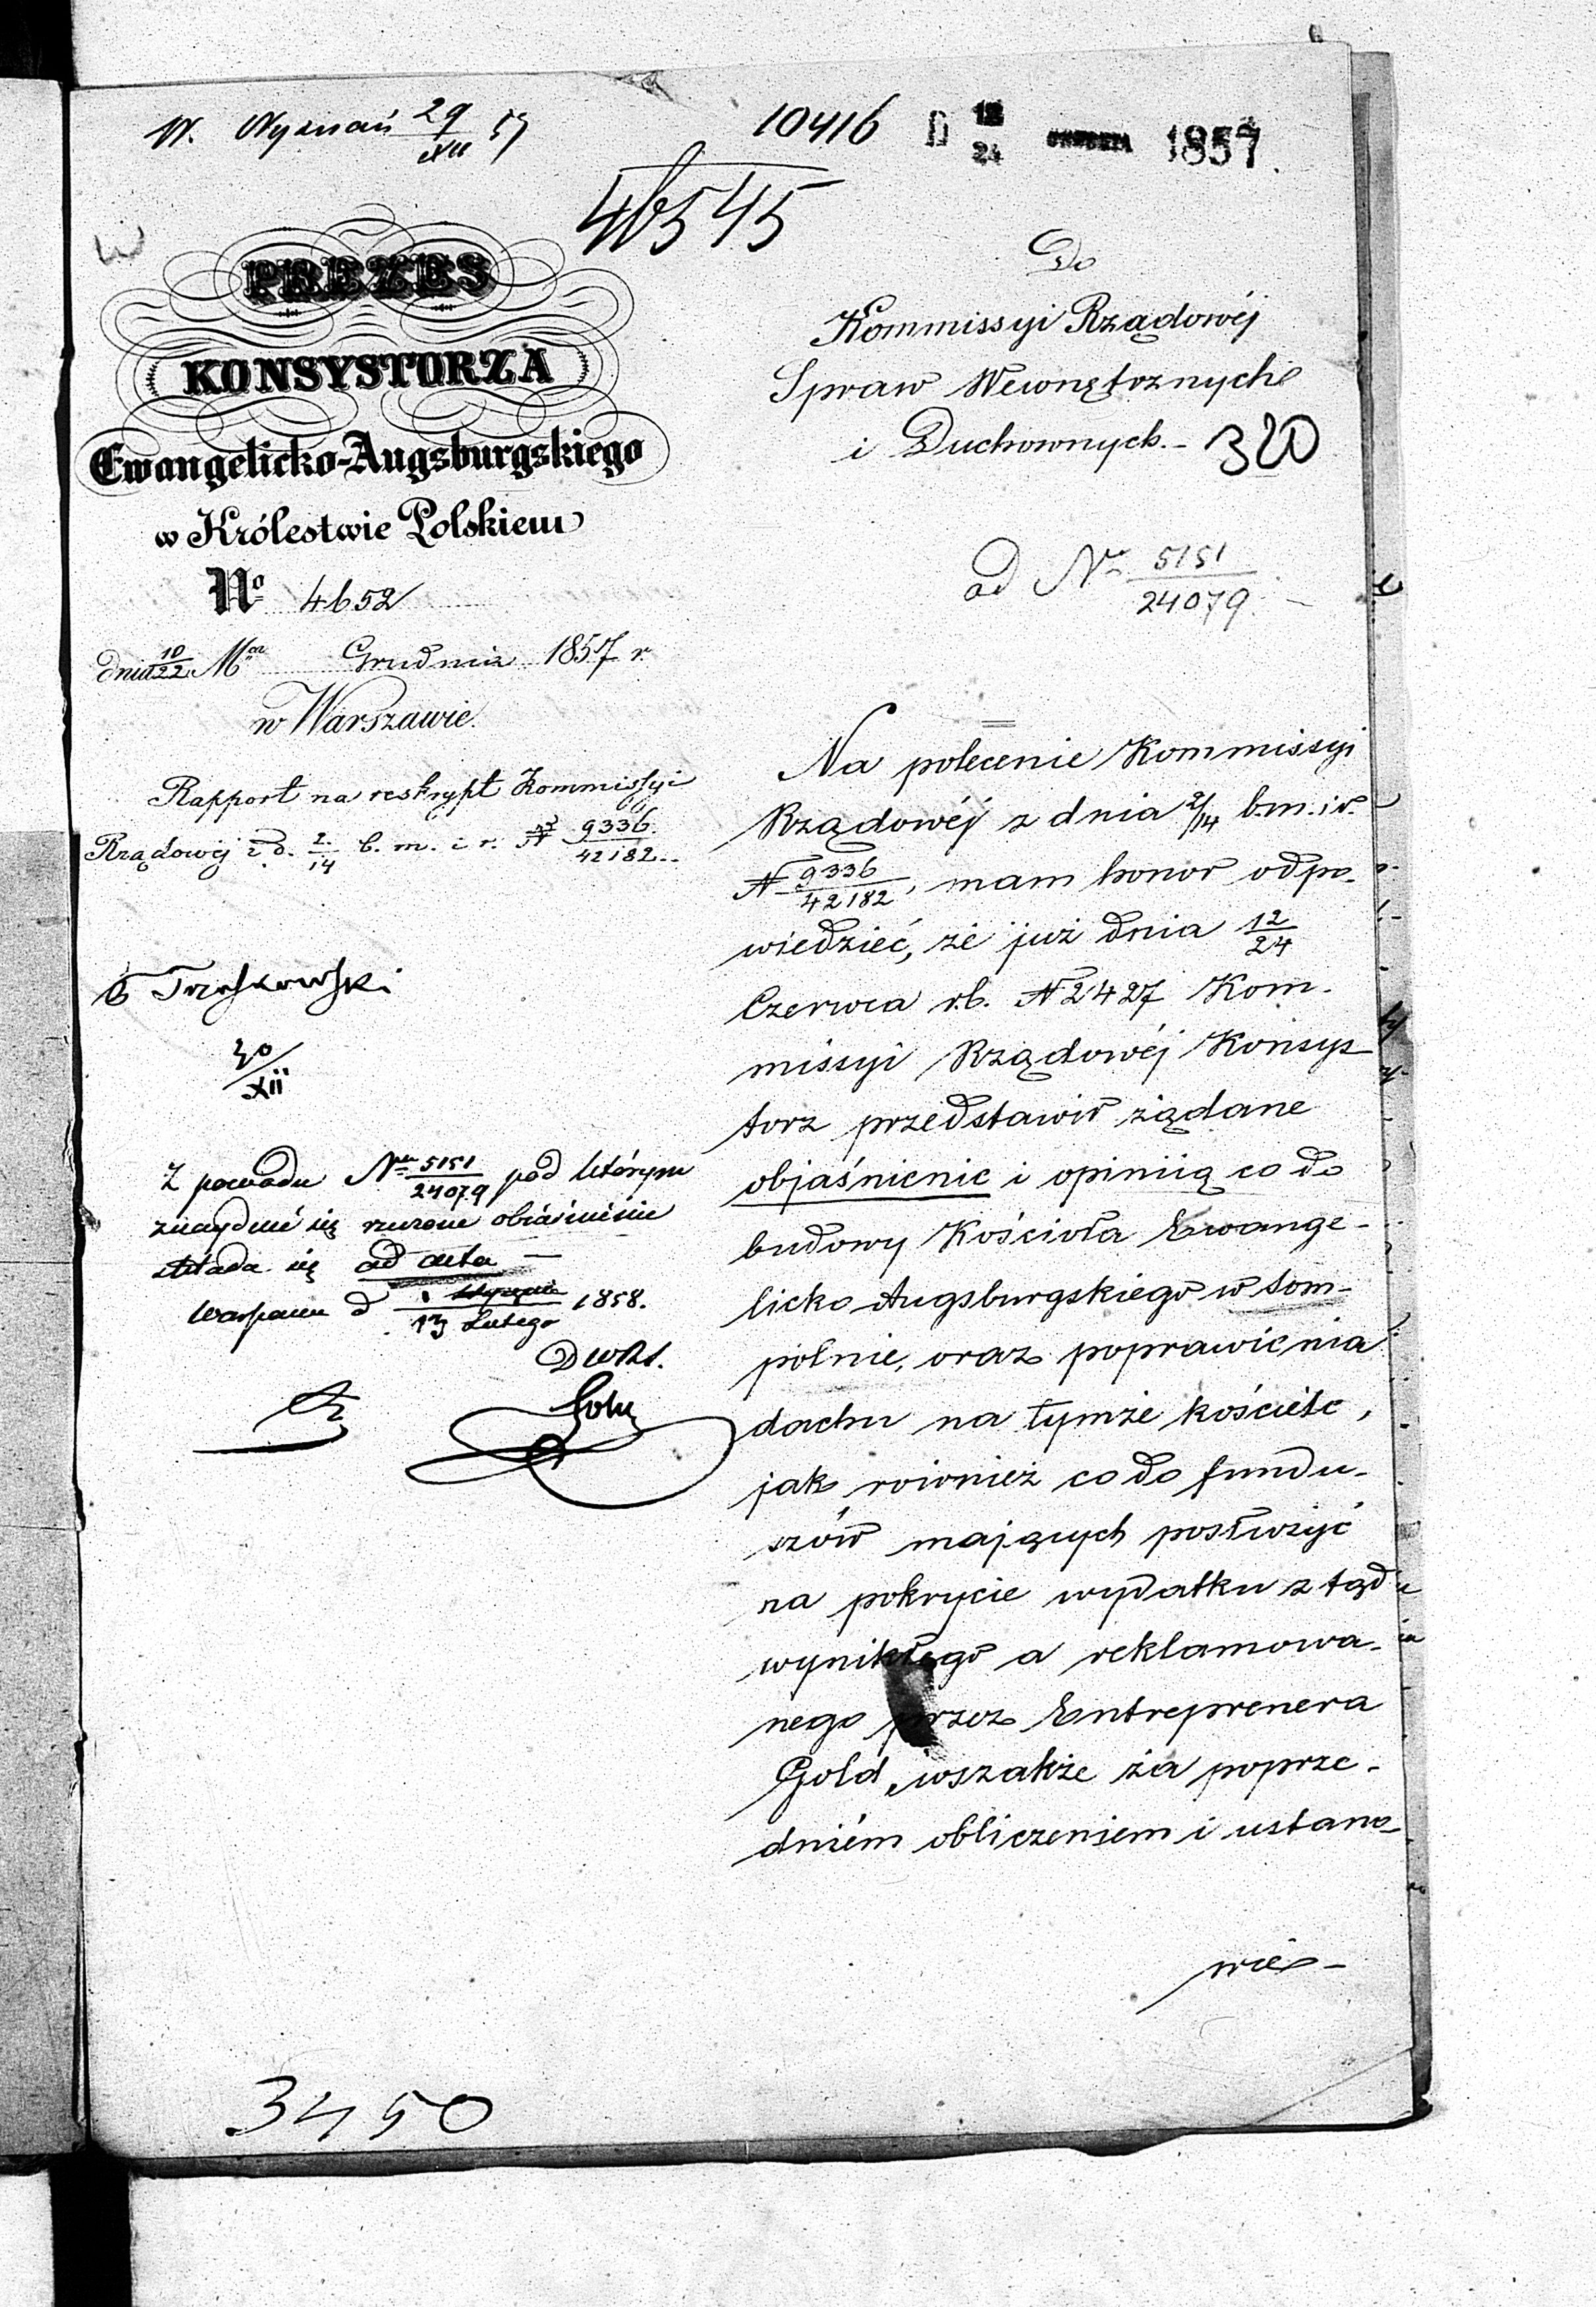 W. Wyznań 29/XII 57
10416
D 12/24 GRUDNIA 1857.
46545
PREZES
KONSYSTORZA
Ewangelicko-Augsburgskiego
w Królestwie Polskiem
No 4652
dnia 10/22 Mca Grudnia 1857 r.
w Warszawie.
Rapport na reskrypt Kommissyi
Rządowej z d. 2/14 b. m. i r. N 9336/42182
30/XII
Z powodu Nru 5151/24079 pod którym
znajduje się rzeczone objaśnienie
składa się ad acta
Warszawa d 1 Stycznia/13 Lutego 1858.
3450
Do
Kommissyi Rządowéj
Spraw Wewnętrznych
i Duchownych.- 320
ad Nr 5151/24079.
Na polecenie Kommissyi
Rządowéj z dnia 2/14 b.m.i r.
N 9336/42182, mam honor odpo-
wiedzieć, że już dnia 12/24
Czerwca r.b. N 2427 Kom-
missyi Rządowéj Konsys-
torz przedstawił żądane
objaśnienie i opiniią co do
budowy Kościoła Ewange-
licko Augsburgskiego w Som-
polnie, oraz poprawienia
dachu na tymże kościele,
jak również co do fundu-
szów mających posłużyć
na pokrycie wydatku ztąd
wynikłego a reklamowa-
nego przez Entreprenera
Gold, wszakże za poprze-
dniém obliczeniem i ustano-
wie-